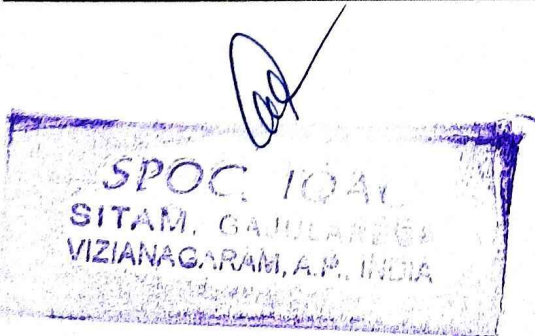 SPOC, IQAC
SITAM, GAJULAREGA
VIZIANAGARAM, A.P., INDIA